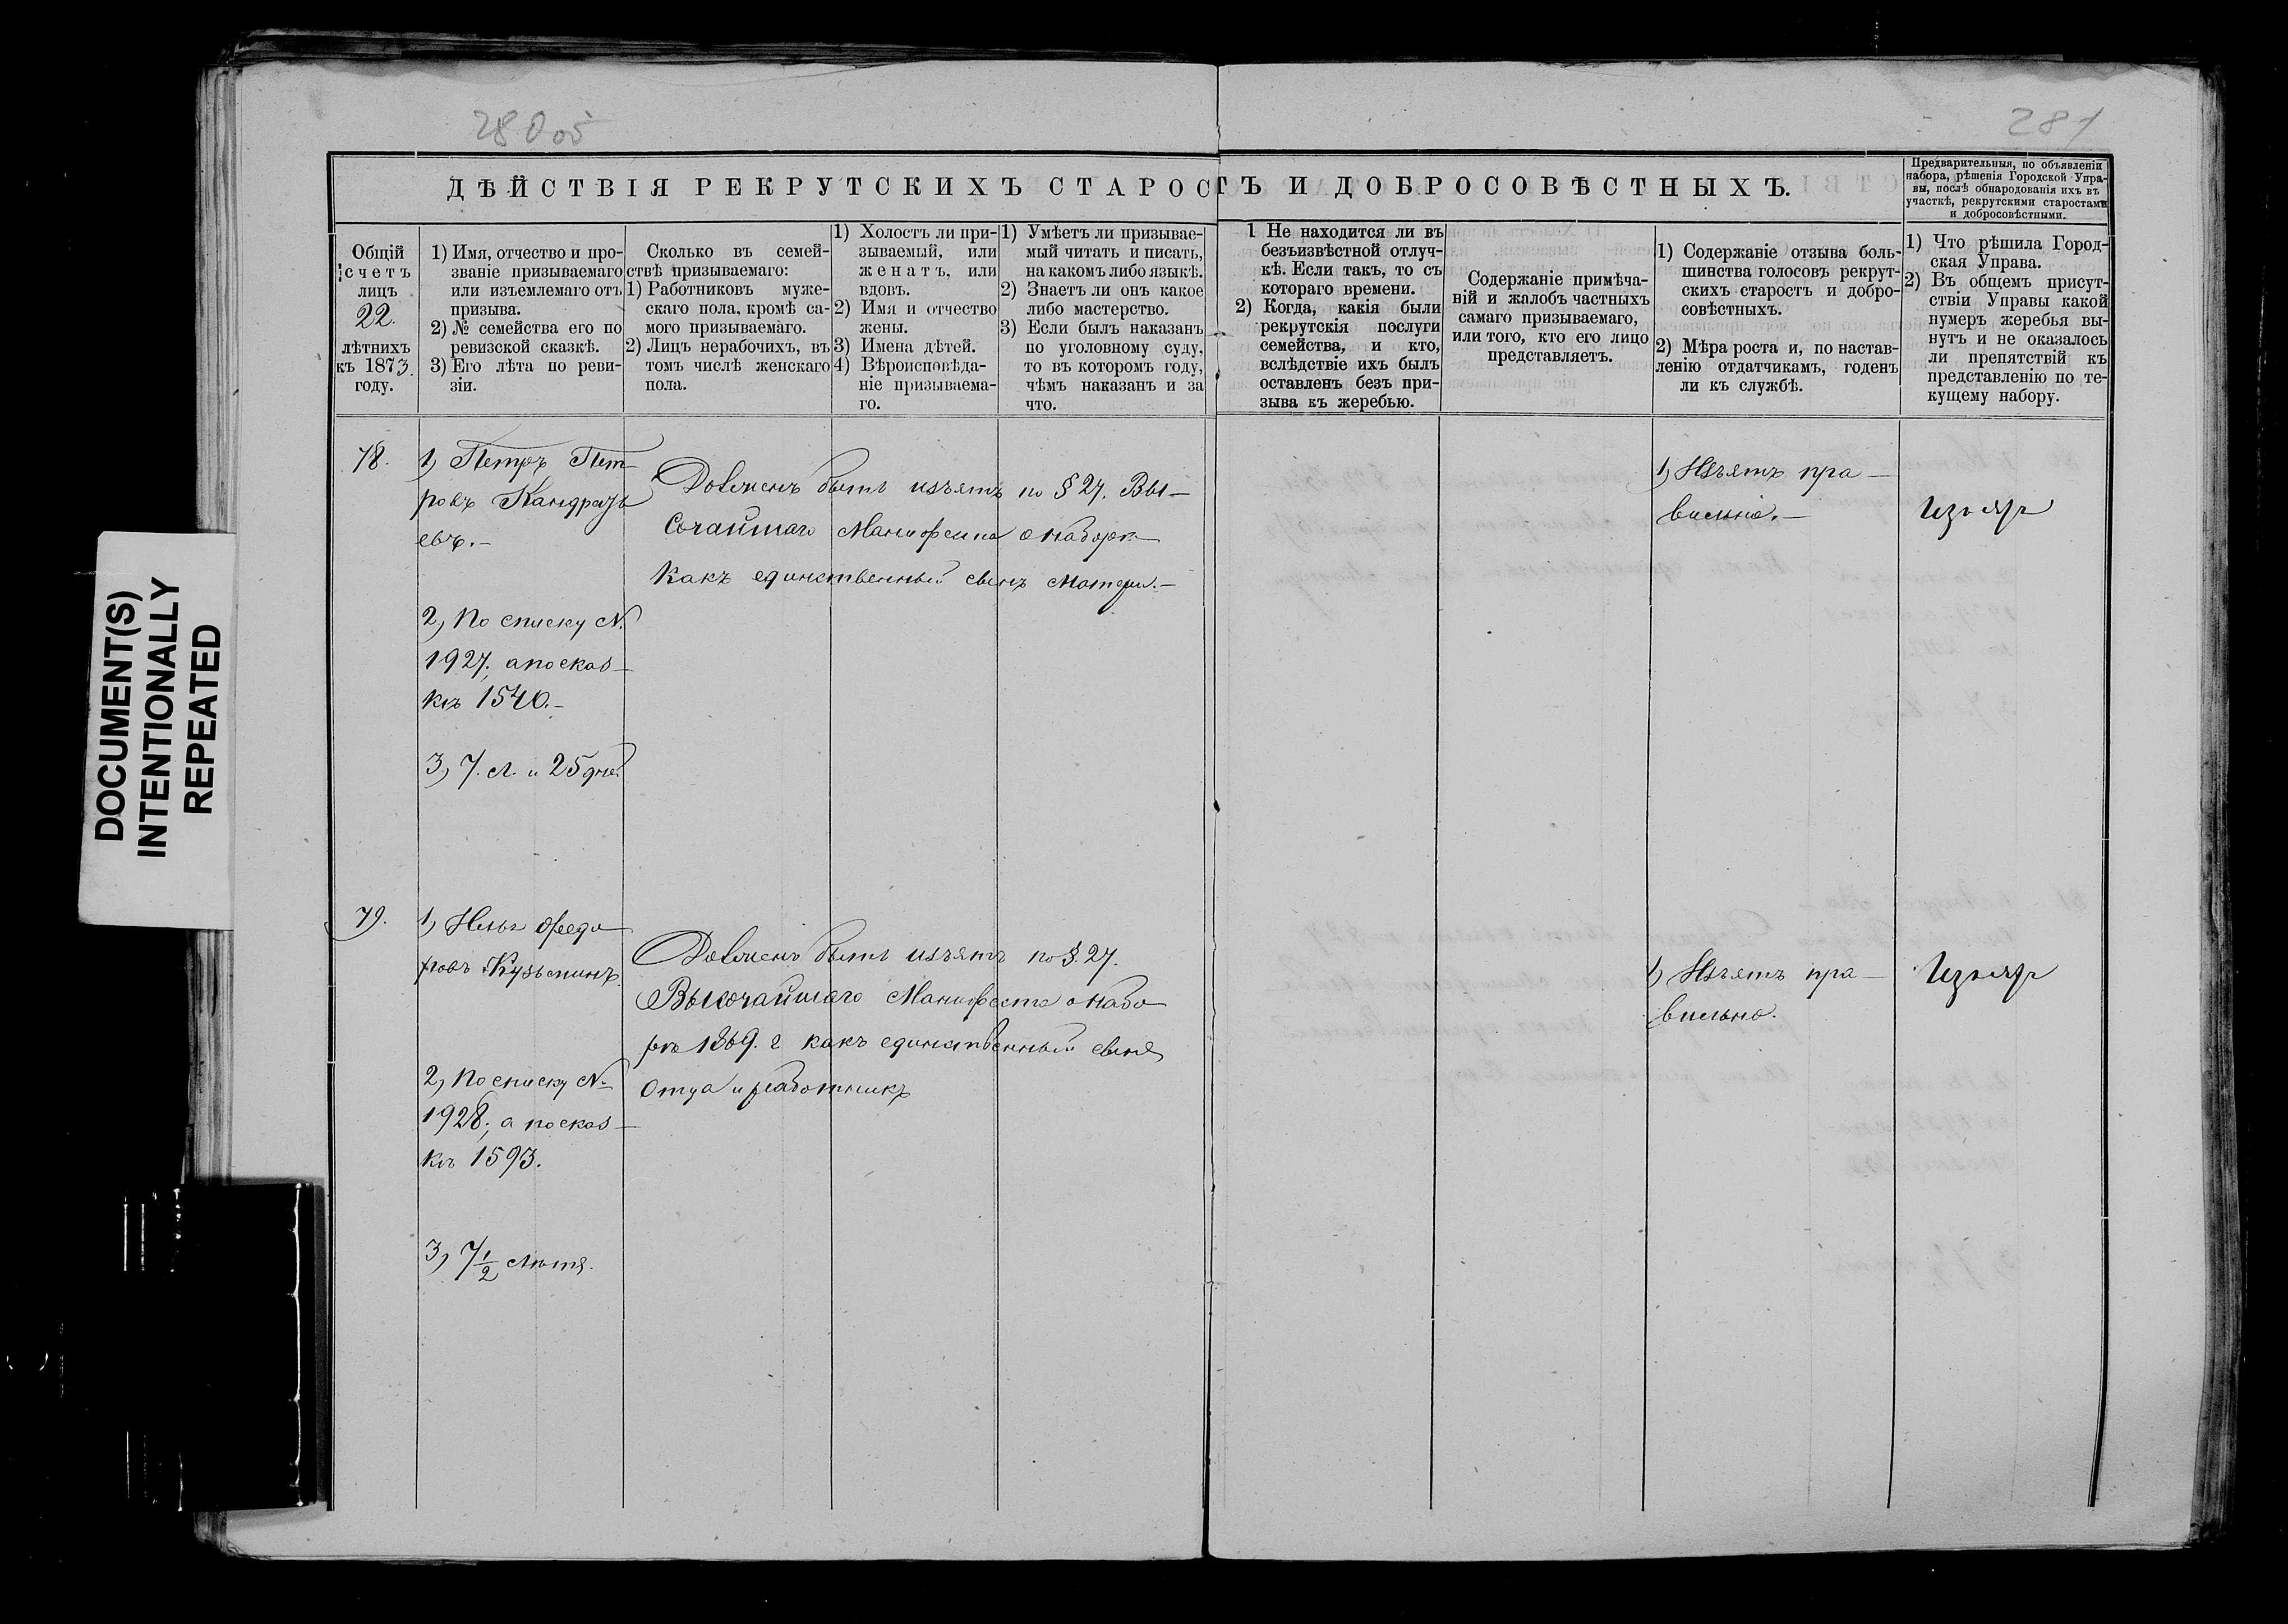 280 об
281
ДѢЙСТВІЯ РЕКРУТСКИХЪ СТАРОСТЪ И ДОБРОСОВѢСТНЫХЪ.
Предварительныя, по объявленіи
набора, рѣшенія Городской Упра-
вы, послѣ обнародованія ихъ въ
участкѣ, рекрутскими старостами
и добросовѣстными.
Общій
счетъ
лицъ
22.
лѣтнихъ
къ 1873.
году.
1) Имя, отчество и про-
званіе призываемаго
или изъемлемаго отъ
призыва.
2) № семейства его по
ревизской сказкѣ.
3) Его лѣта по реви-
зіи.
Сколько въ семей-
ствѣ призываемаго:
1) Работниковъ муже-
скаго пола, кромѣ са-
мого призываемаго.
2) Лицъ нерабочихъ, въ
томъ числѣ женскаго
пола.
1) Холостъ ли при-
зываемый, или
женатъ, или
вдовъ.
2) Имя и отчество
жены.
3) Имена дѣтей.
4) Вѣроисповѣда-
ніе призываема-
го.
1) Умѣетъ ли призывае-
мый читать и писать,
на какомъ либо языкѣ.
2) Знаетъ ли онъ какое
либо мастерство.
3) Если былъ наказанъ
по уголовному суду,
то въ которомъ году,
чѣмъ наказанъ и за
что.
1 Не находится ли въ
безъизвѣстной отлуч-
кѣ. Если такъ, то съ
котораго времени.
2) Когда, какія были
рекрутскія послуги
семейства, и кто,
вслѣдствіе ихъ былъ
оставленъ безъ при-
зыва къ жеребью.
Содержаніе примѣча-
ній и жалобъ частныхъ
самаго призываемаго,
или того, кто его лицо
представляетъ.
1) Содержаніе отзыва боль-
шинства голосовъ рекрут-
скихъ старостъ и добро-
совѣстныхъ.
2) Мѣра роста и, по настав-
ленію отдатчикамъ, годенъ
ли къ службѣ.
1) Что рѣшила Город-
ская Управа.
2) Въ общемъ присут-
ствіи Управы какой
нумеръ жеребья вы-
нутъ и не оказалось
ли препятствій къ
представленію по те-
кущему набору.
78.
1) Петръ Пет-
ровъ Кандратъ
евъ.-
2) По списку №
1927, а по сказ-
къ 1540.-
3) 7. л. и 25 дней
Долженъ быть изъятъ по § 27. Вы-
сочайшаго Манифеста о наборѣ
какъ единственный сынъ матери.-
1) Изъятъ пра-
вильно.-
Изъят
79.
1) Илья Федо
ровъ Кузьминъ.
2) По списку №
1928; а по сказ-
къ 1593.
3) 7 1/2 лѣтъ.
Долженъ быть изъятъ по §. 27.
Высочайшаго Манифеста о набо
рѣ 1869. г какъ единственный сынъ
отца и работникъ
1) Изъятъ пра-
вильно.
Изъят
DOCUMENT(S)
INTENTIONALLY
REPEATED